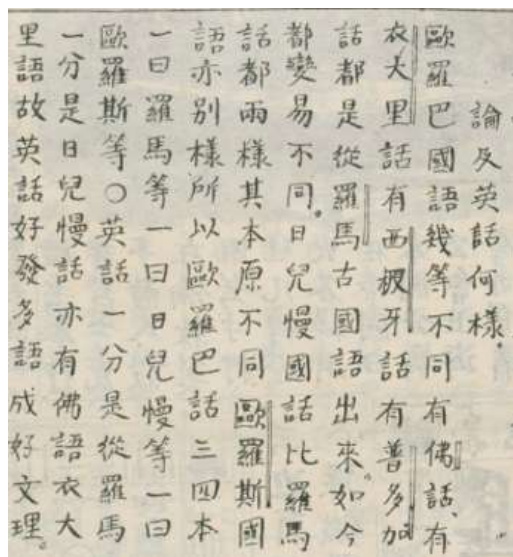 論及英話何樣。
歐羅巴國語幾等不同有佛話、有
衣大里話有西根牙話有普多加
話都是從羅馬古國語出來。如今
都變易不同。日兒慢國話比羅馬
話都兩樣其本原不同歐羅斯國
語亦別樣所以歐羅巴話三四本
一曰羅馬等一曰日兒慢等一曰
歐羅斯等○英話一分是從羅馬
一分是日兒慢話亦有佛語衣大
里語故英話好發多語成好文理。